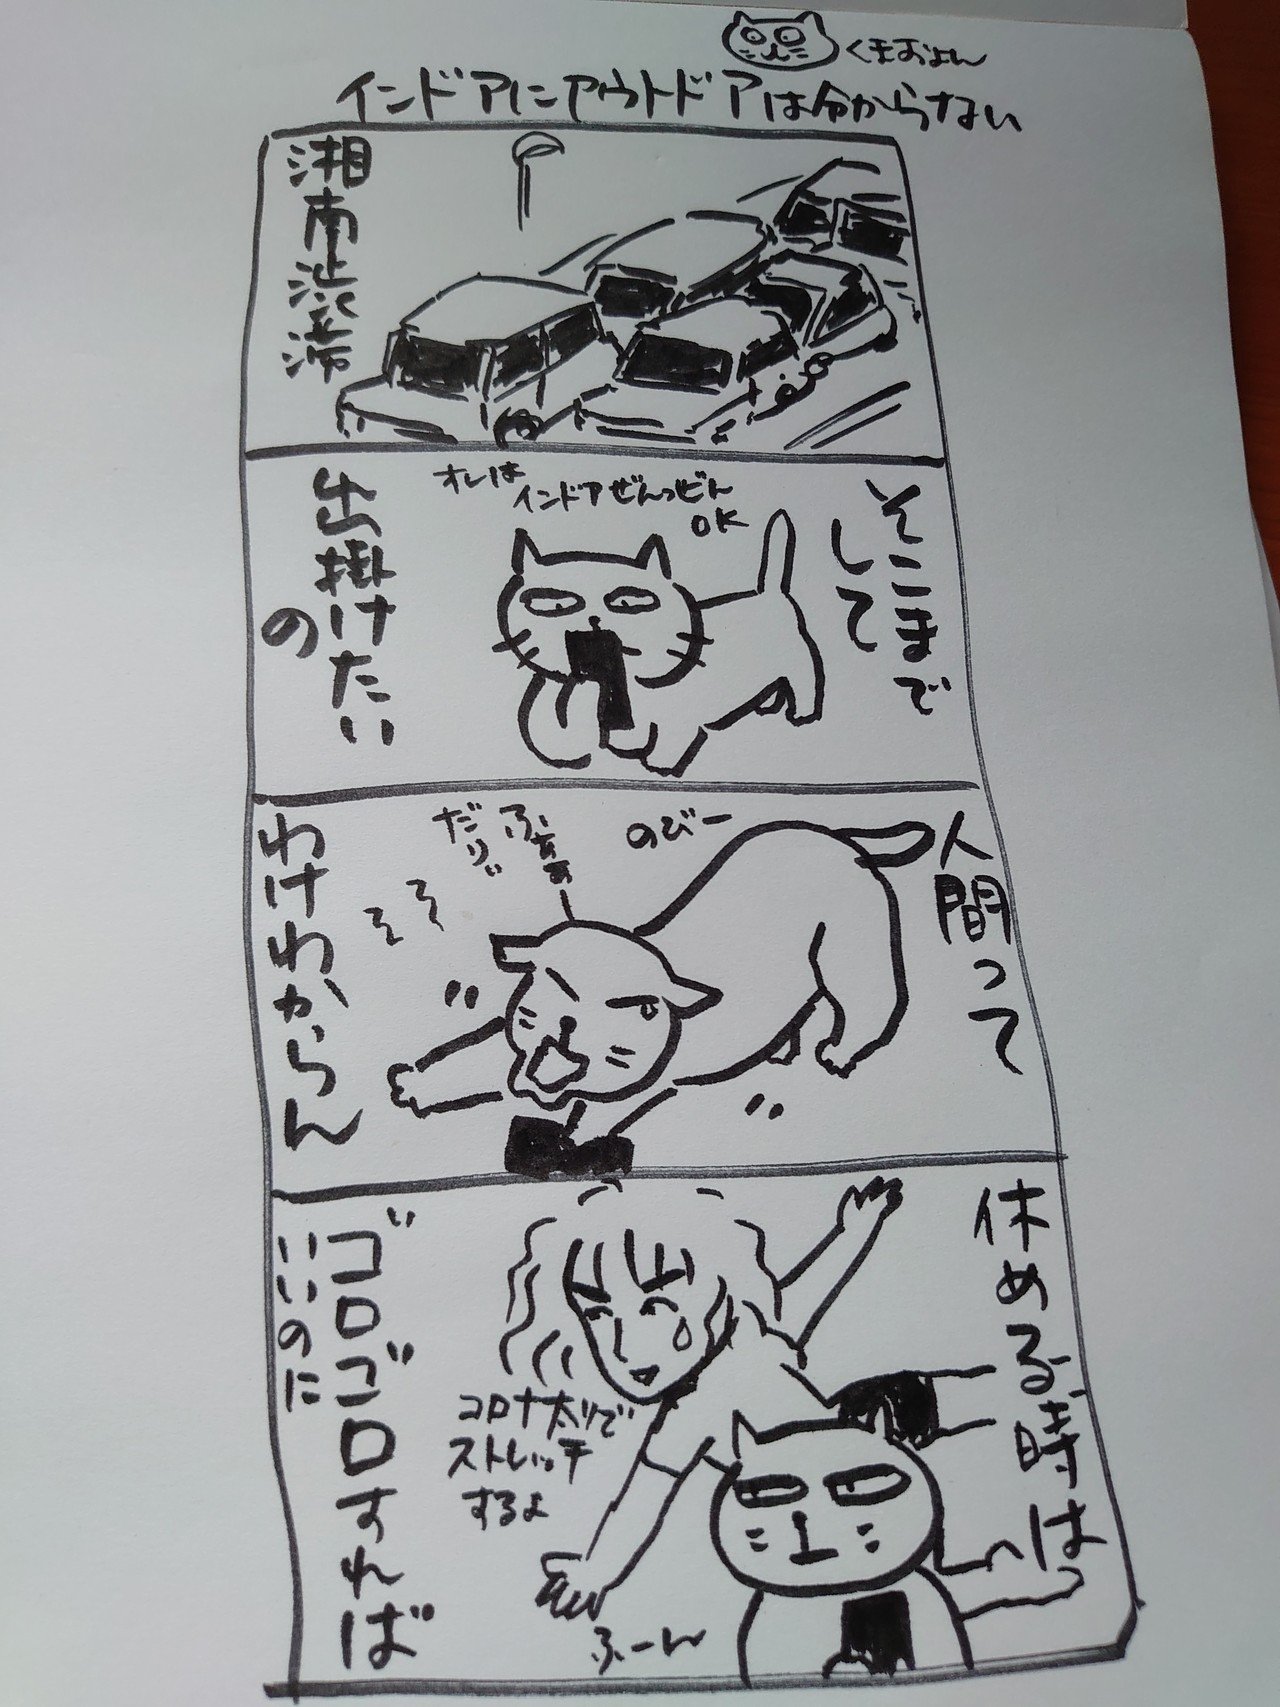 くまおよん
インドアにアウトドアは分からない
湘南渋滞
そこまで
して
オレは
インドアぜんっぜん
OK
出掛けたい
の
人間って
のびー
ふぁぁぁー
だりぃ
わけわからん
休める時は
コロナ太りで
ストレッチ
するよ
ふーん
ゴロゴロすれば
いいのに